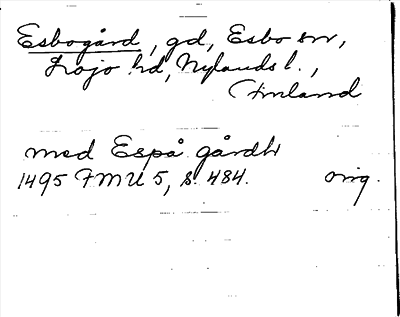 Esbogård, gd, Esbo sn,
Lojo hd, Nylands l.,
Finland
med Espå gårdh
1495 FMU 5, s. 484. orig.